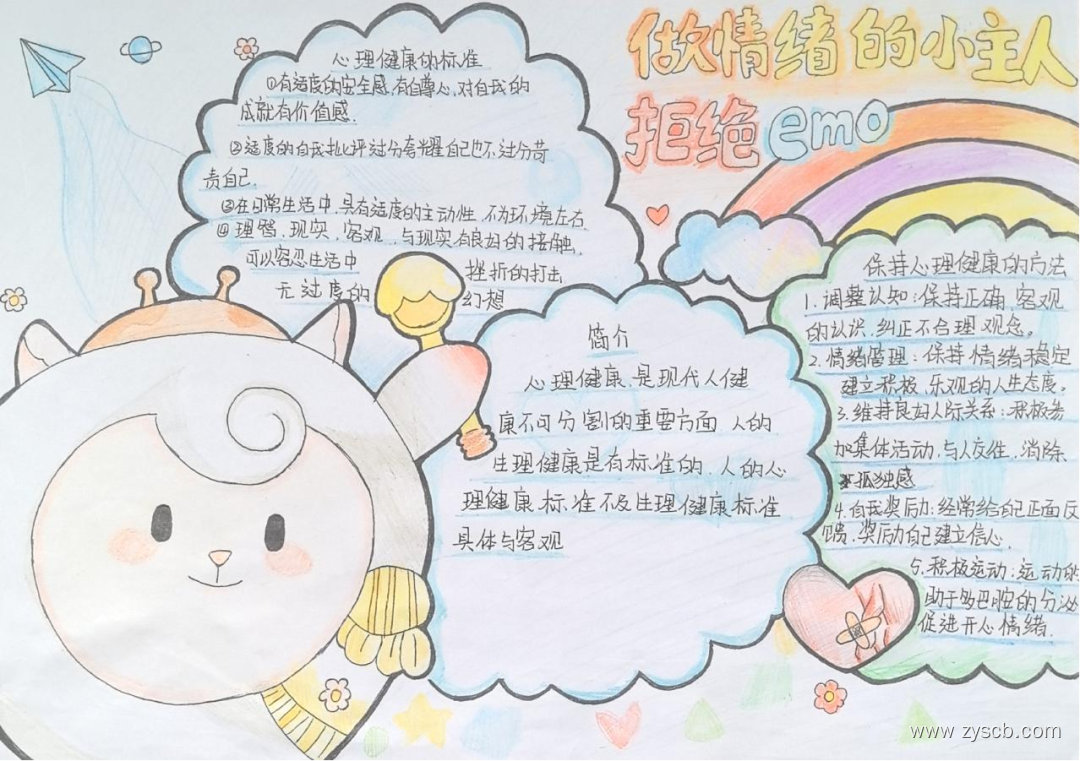 做情绪的小主人
拒绝emo
心理健康的标准
①有适度的安全感,有自尊心,对自我的
成就有价值感.
②适度的自我批评过分夸耀自己也不过分苛
责自己.
③在日常生活中,具有适度的主动性,不为环境左右
④理智,现实,客观,与现实有良好的接触,
可以容忍生活中 挫折的打击
无过度的 幻想
简介
心理健康是现代人健
康不可分割的重要方面 人的
生理健康是有标准的.人的心
理健康标准不及生理健康标准
具体与客观
保持心理健康的方法
1.调整认知:保持正确,客观
的认识,纠正不合理观念。
2.情绪管理:保持情绪稳定
建立积极,乐观的人生态度。
3.维持良好人际关系:积极参
加集体活动,与人交往,消除
孤独感
4.自我奖励:经常给自己正面反
馈.奖励自己建立信心.
5.积极运动:运动的
助于多巴胺的分泌
促进开心情绪.
www.zyscb.com